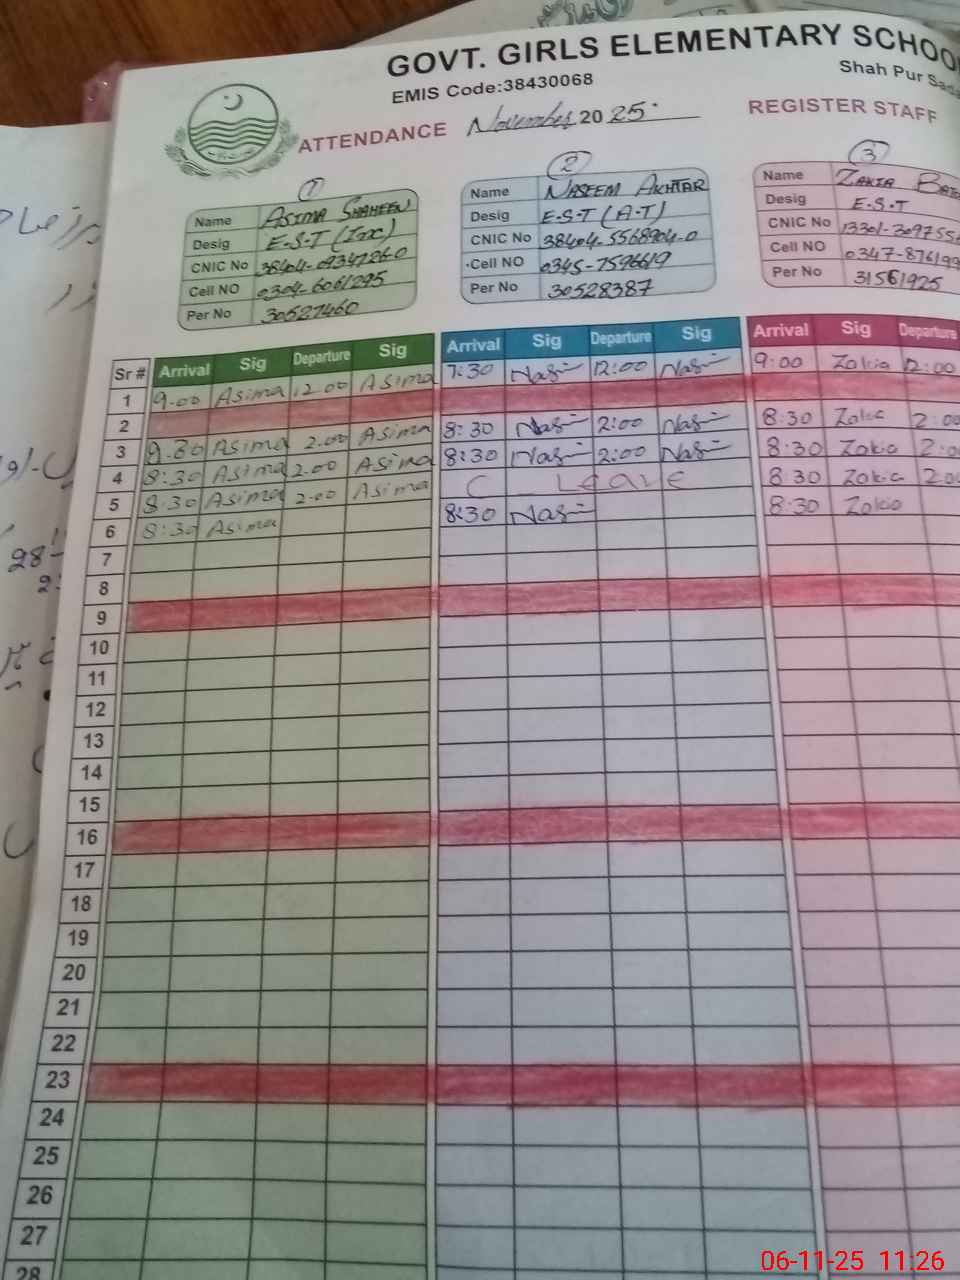 GOVT. GIRLS ELEMENTARY SCHOO
EMIS Code:38430068
Shah Pur Sada
ATTENDANCE November 2025
REGISTER STAFF
1 2 3
Name ASIMA SHAHEEN
Desig E-S-T (Inc)
CNIC No 38404-0934726-0
Cell NO 0304-6061295
Per No 30527460
Name NASEEM AKHTAR
Desig E-S-T (A-T)
CNIC No 38404-5568904-0
Cell NO 0345-7596619
Per No 30528387
Name ZAKIA BATO
Desig E.S.T
CNIC No 13301-3097556
Cell NO 0347-876199
Per No 31561925
Sr # Arrival Sig Departure Sig Arrival Sig Departure Sig Arrival Sig Departure
1 9.00 Asima 12.00 Asima 7:30 Nas 12:00 Nas 9:00 Zakia 12:00
2
3 9.30 Asima 2.00 Asima 8:30 Nas 2:00 Nas 8:30 Zakia 2:00
4 8:30 Asima 2.00 Asima 8:30 Nas 2:00 Nas 8:30 Zakia 2:0
5 8.30 Asima 2.00 Asima C _ Leave 8:30 Zakia 2:0
6 8:30 Asima 8:30 Nas 8:30 Zakia
7
8
9
10
11
12
13
14
15
16
17
18
19
20
21
22
23
24
25
26
27
28
06-11-25 11:26